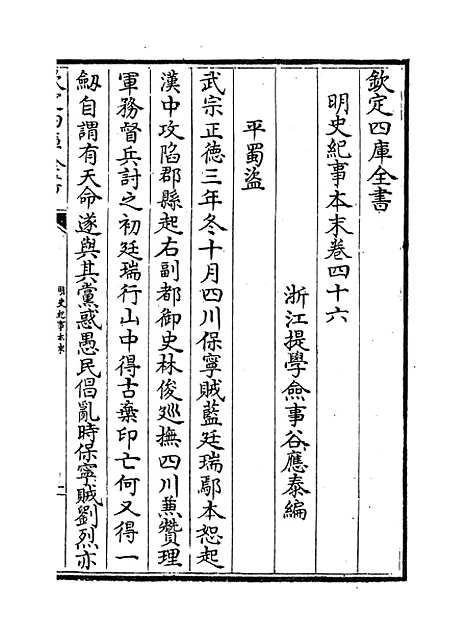 欽定四庫全書
明史紀事本末卷四十六
浙江提學僉事谷應泰編
平蜀盜
武宗正德三年冬十月四川保寧賊藍廷瑞鄢本恕起
漢中攻陷郡縣起右副都御史林俊廵撫四川兼贊理
軍務督兵討之初廷瑞行山中得古藥印亡何又得一
劒自謂有天命遂與其黨惑愚民倡亂時保寧賊劉烈亦
欽定四庫全書
明史紀事本末